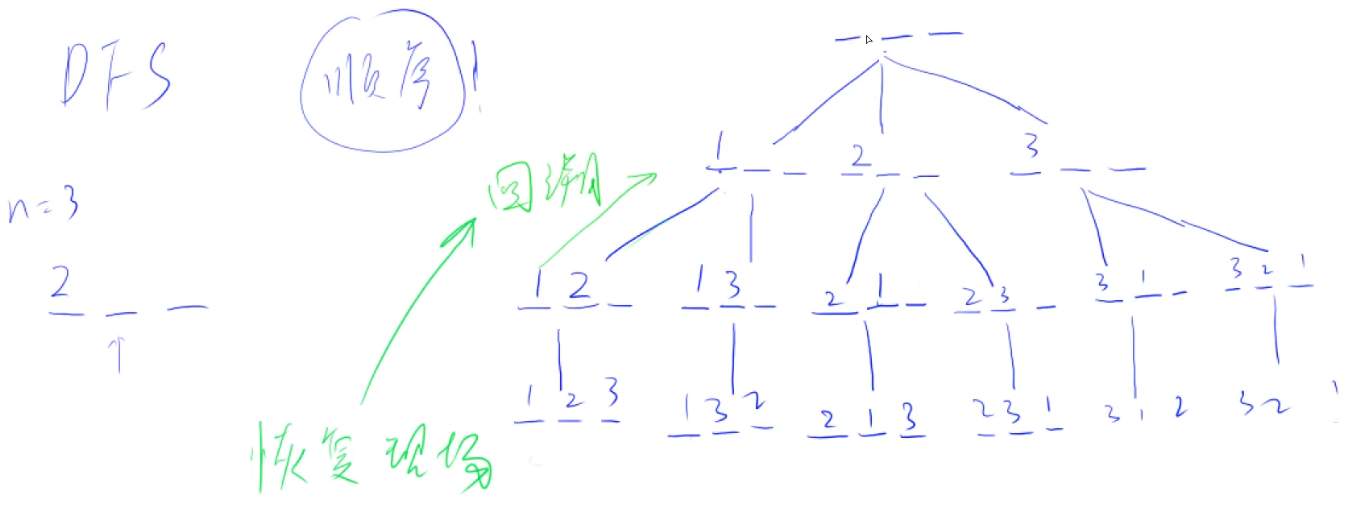 DFS 顺序!
n=3
2 _ _
↑
回溯
恢复现场
_ _ _
1 _ _ 2 _ _ 3 _ _
1 2 _ 1 3 _ 2 1 _ 2 3 _ 3 1 _ 3 2 1
1 2 3 1 3 2 2 1 3 2 3 1 3 1 2 3 2 1